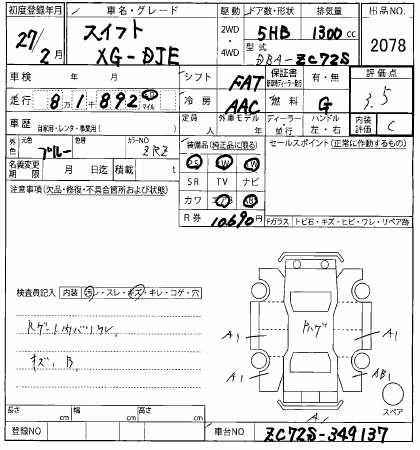 初度登録年月 車名・グレード 駆動 ドア数・形状 排気量 出品NO.
27/2月 スイフト XG-DJE 2WD・4WD 5HB 1300cc 2078
型式 DBA-ZC72S
車検 年 月 シフト FAT 保証書 有・無 評価点 3.5
走行 8万1千892 マイル 冷房 AAC 燃料 G
車歴 自家用・レンタ・事業用( ) 定員 人 外車モデル 年 ディーラー・並行 ハンドル 左・右 内装評価 C
外色 元色 ブルー 色替 カラーNO ZRZ 装備品(純正品に限る) セールスポイント(正常に作動するもの)
PS PW
名義変更期限 月 日迄 積載 t SR TV ナビ
注意事項(欠品・修復・不具合箇所および状態) カワ エアB AB
R券 10,690円 Fガラス トビ石・キズ・ヒビ・ワレ・リペア跡
検査員記入 内装 汚・スレ・キズ・キレ・コゲ・穴
キズ、B、
A1 Rハゲ A1
A1 AB1
A
スペア
長さ cm 幅 cm 高さ cm
登録NO 車台NO ZC72S-349137